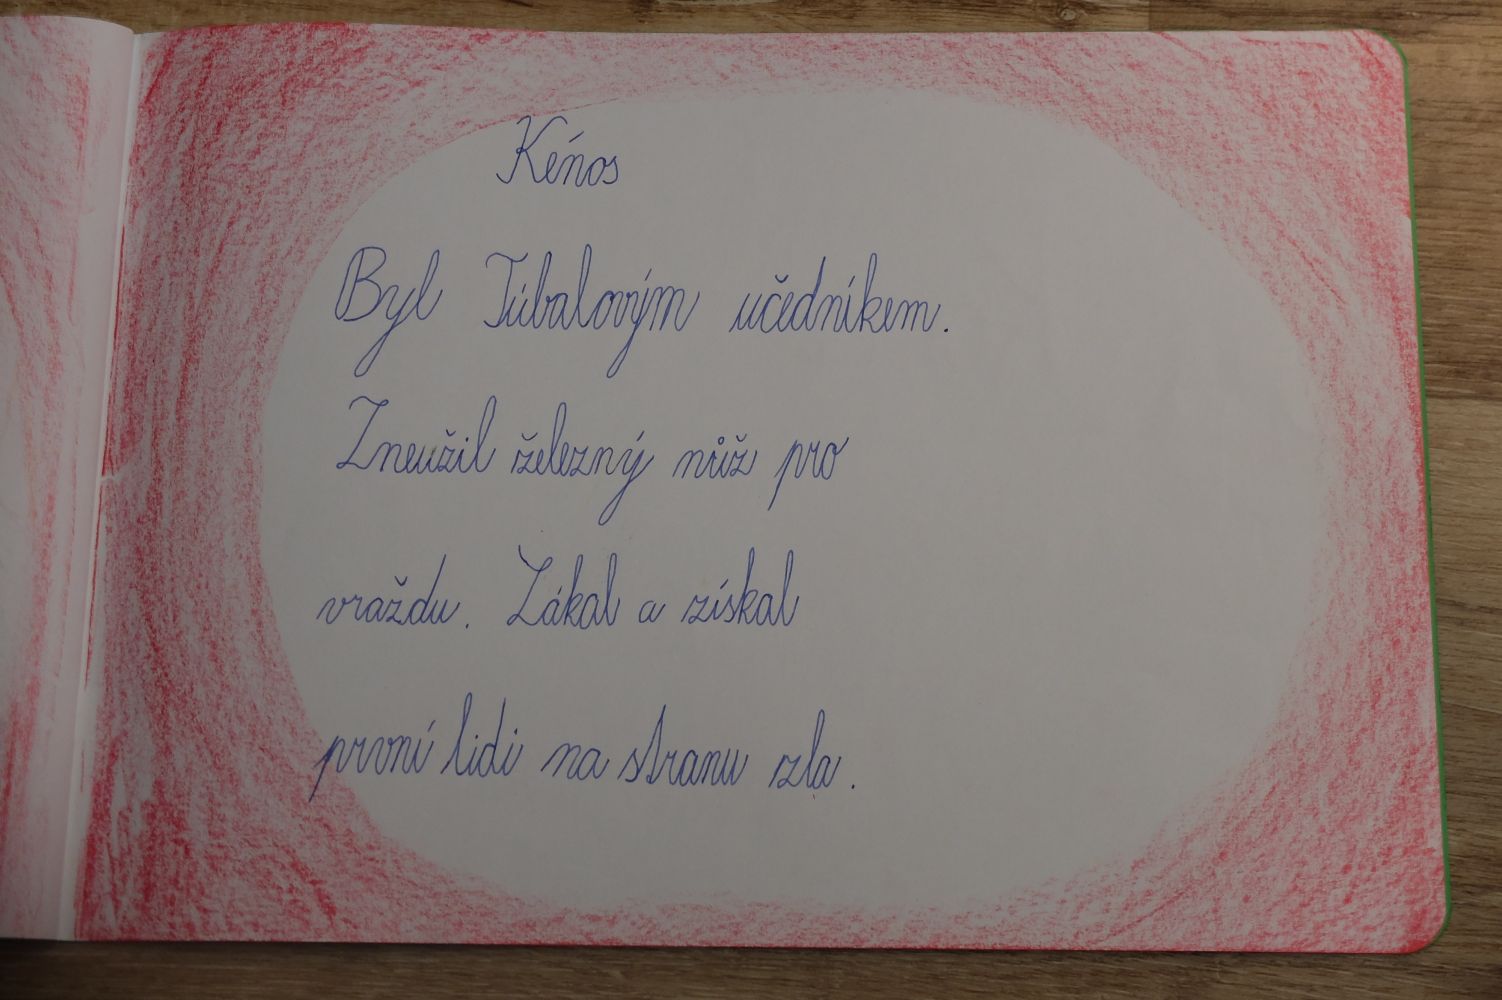 Kénos
Byl Túbalovým učedníkem.
Zneužil železný nůž pro
vraždu. Lákal a získal
první lidi na stranu zla.